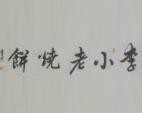 李小老燒餅